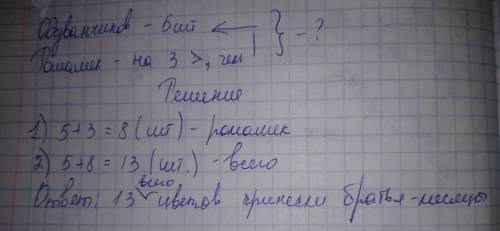 Одуванчиков - 5шт
Ромашек - на 3 >, чем } - ?
Решение
1) 5+3 = 8 (шт) - ромашек
2) 5+8 = 13 (шт.) - всего
Ответ: 13 всего цветов принесли братья-месяцы